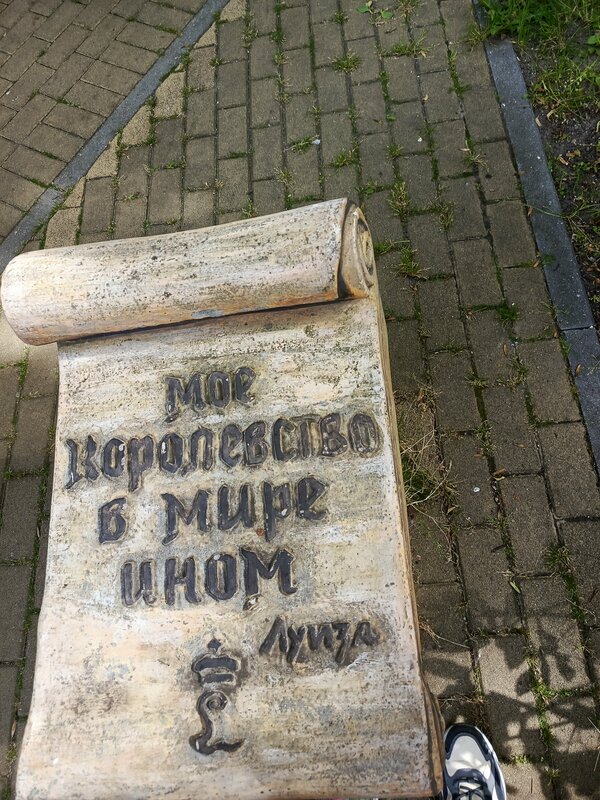 мое
королевство
в мире
ином
Луиза
L